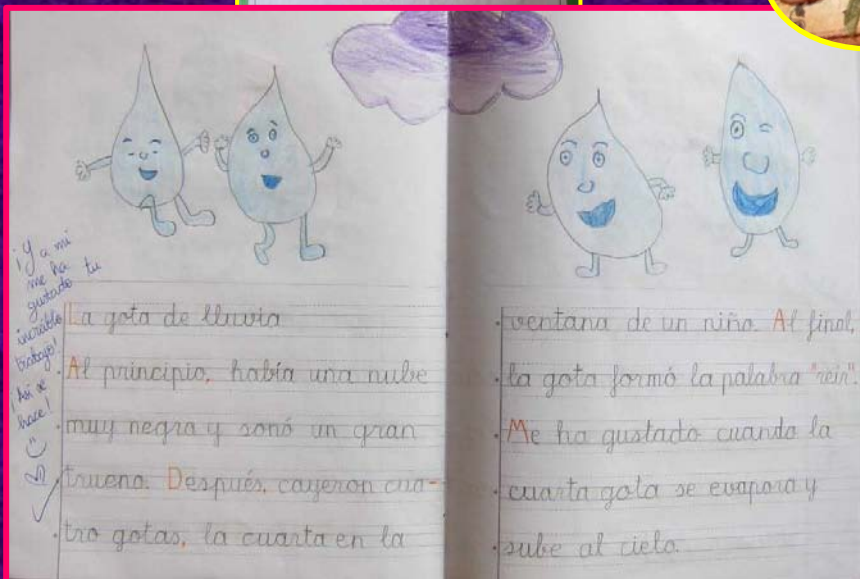 ¡Y a mi
me ha
gustado tu
increíble
trabajo!
¡Así se
hace!
La gota de lluvia
Al principio, había una nube
muy negra y sonó un gran
trueno. Después, cayeron cua-
tro gotas, la cuarta en la
ventana de un niño. Al final,
la gota formó la palabra "reír".
Me ha gustado cuando la
cuarta gota se evapora y
sube al cielo.